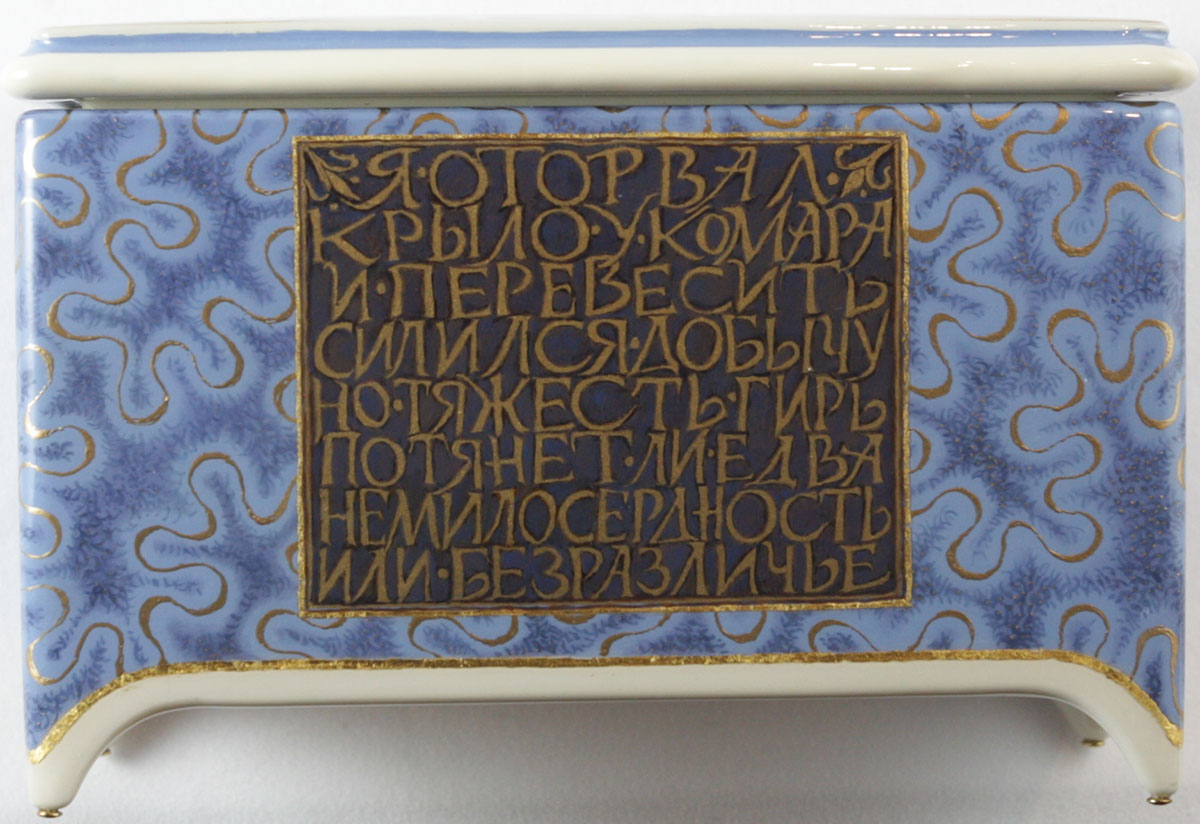 Я·ОТОРВАЛ·
КРЫЛО·У·КОМАРА
И·ПЕРЕВЕСИТЬ
СИЛИЛСЯ·ДОБЫЧУ
НО·ТЯЖЕСТЬ·ГИРЬ
ПОТЯНЕТ·ЛИ·ЕДВА
НЕМИЛОСЕРДНОСТЬ
ИЛИ·БЕЗРАЗЛИЧЬЕ